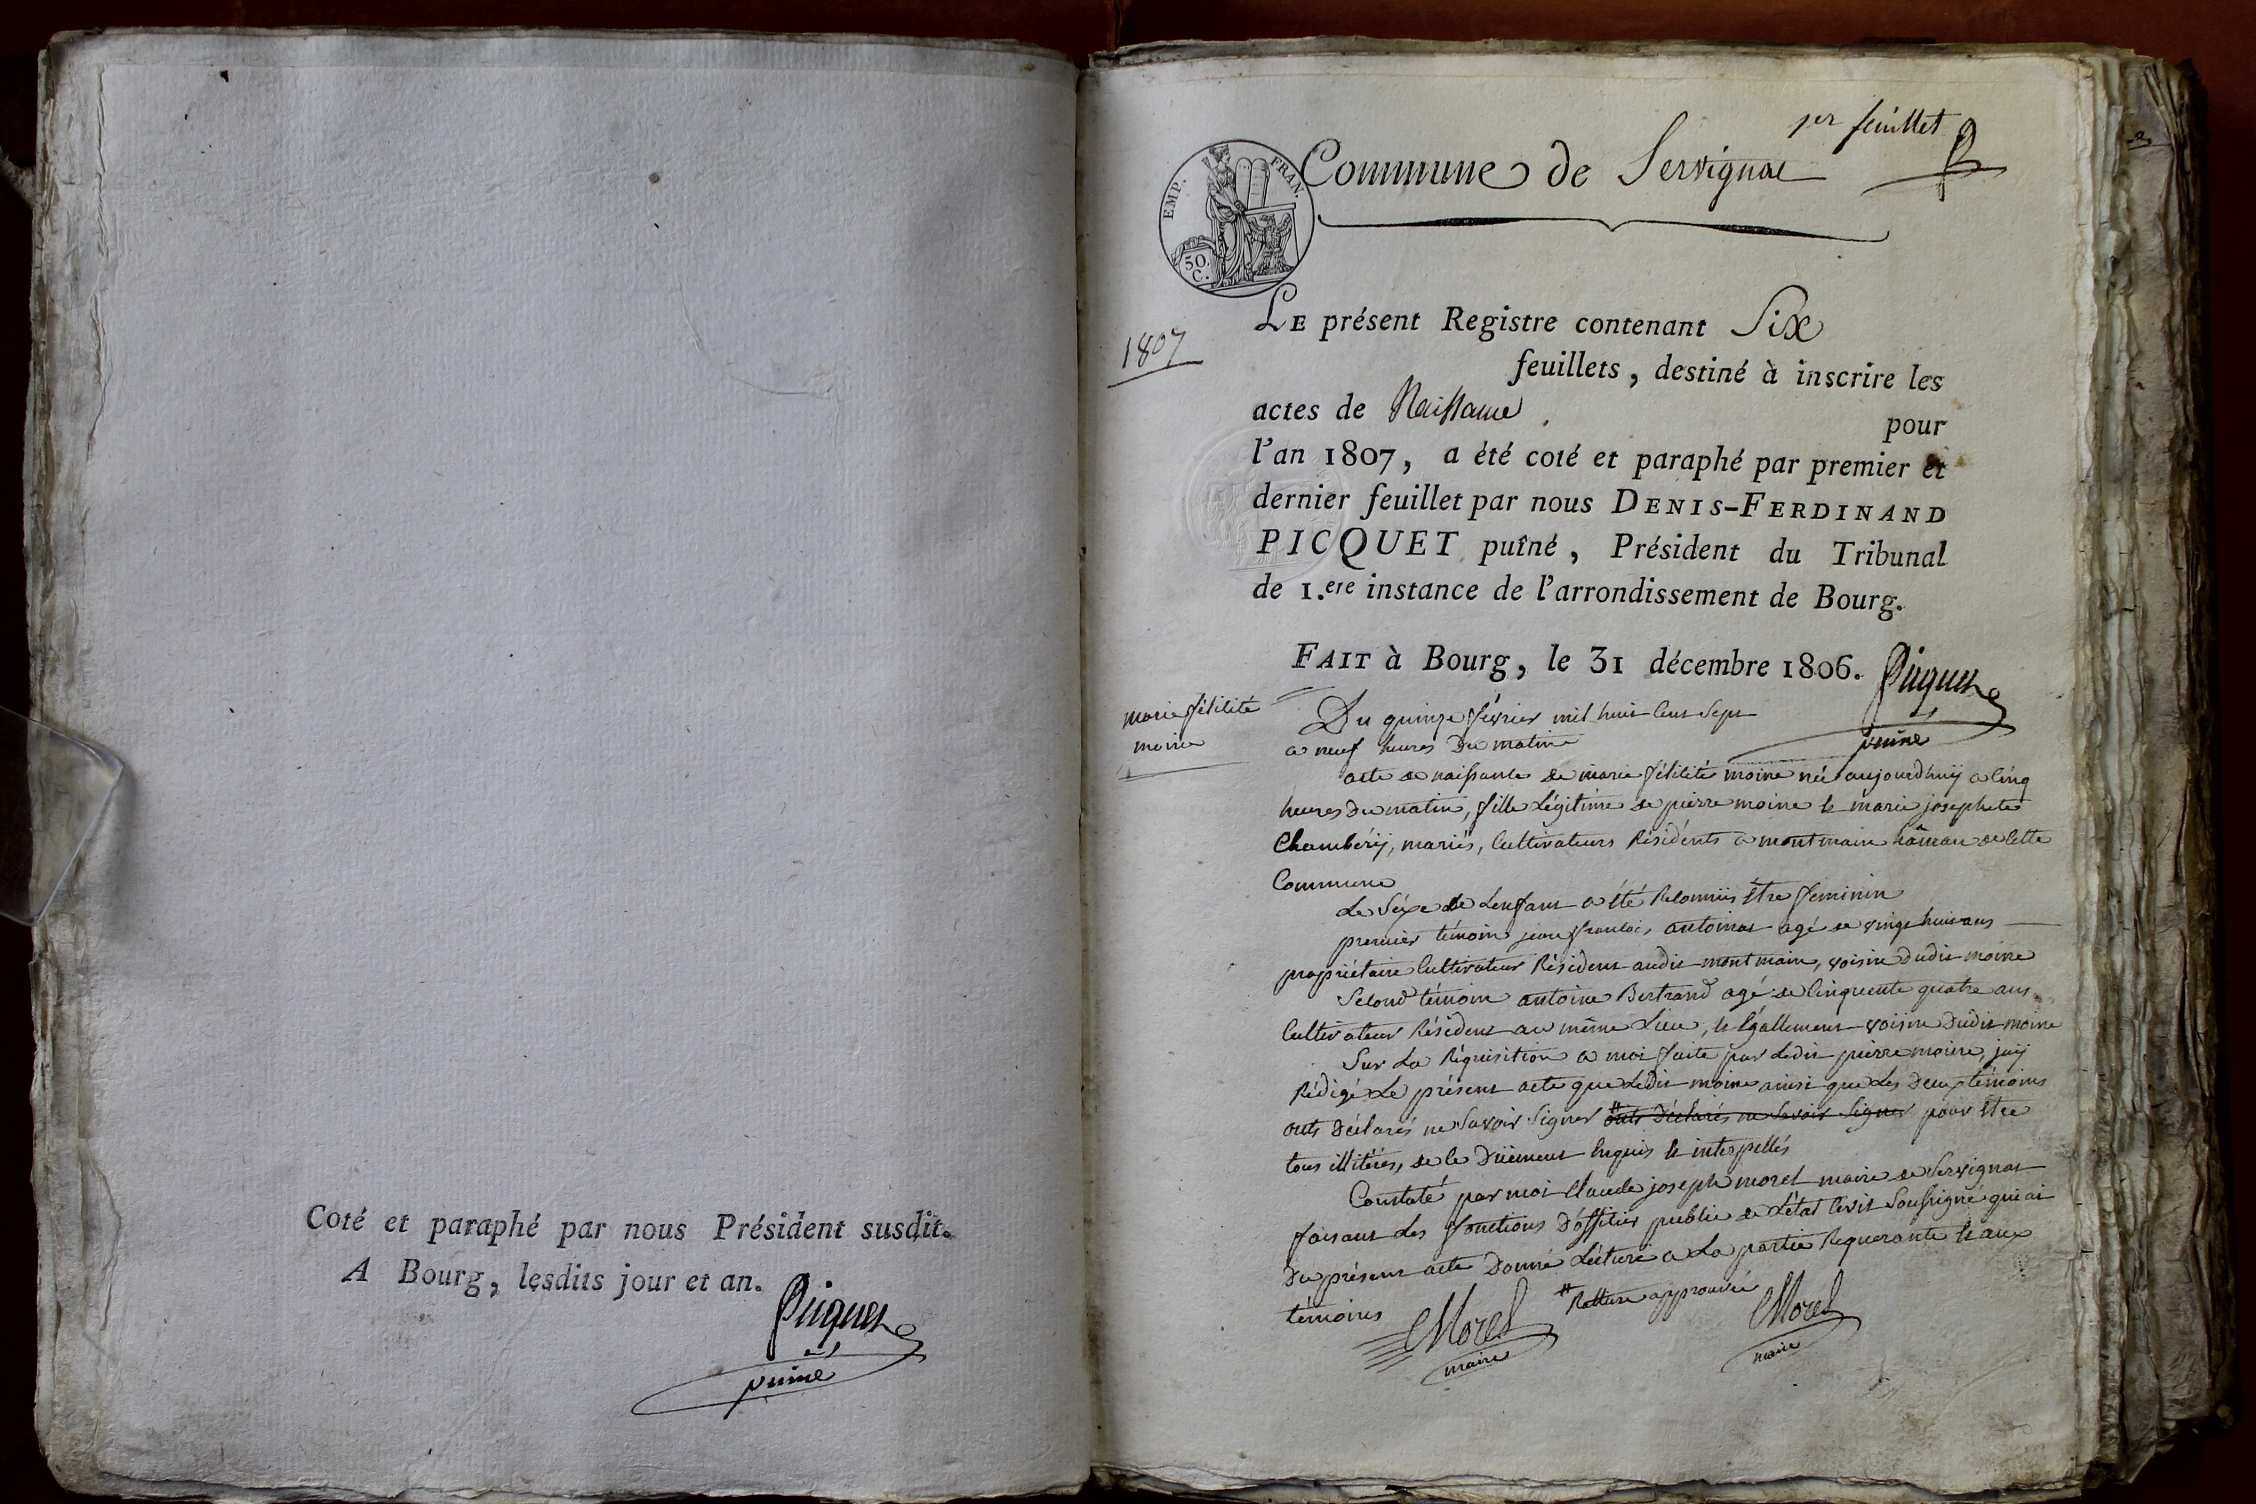 Coté et paraphé par nous Président susdit.
A Bourg, lesdits jour et an.
Picquet
puiné
1er feuillet
Commune de Servignat
EMP. FRAN.
50. C.
1807
LE présent Registre contenant Six
feuillets, destiné à inscrire les
actes de Naissance pour
l'an 1807, a été coté et paraphé par premier et
dernier feuillet par nous DENIS-FERDINAND
PICQUET puîné, Président du Tribunal
de 1.ere instance de l'arrondissement de Bourg.
FAIT à Bourg, le 31 décembre 1806.
Picquet
puiné
marie félicité
moine
Du quinze février mil huit cent sept
a neuf heures du matin
acte de naissance de marie félicité moine née aujourd'huij a cinq
heures du matin, fille légitime de pierre moine et marie josephete
Chambérij, mariés, cultivateurs Résidents a montmain hâmau de cette
Commune
Le séxe de Lenfant a été Reconnu être féminin
premier témoin jean francois antoinat agé de vingt huit ans
propriétaire cultivateur Résident audit montmain, voisin dudit moine
Second témoin antoine Bertrand agé de cinquente quatre ans
cultivateur Résident au même Lieu, et égallement voisin dudit moine
Sur La Réquisition a moi faite par Ledit pierre moine, jaij
Rédigé Le présent acte que Ledit moine ainsi que Les deux témoins
onts déclarés ne savoir signer # onts déclarés ne savoir signer pour être
tous illitérés, de ce düement enquis et interpellés
Constaté par moi Claude joseph morel maire de Servignat
faisant Les fonctions d'officier public de L'état civil Soussigné qui ai
du présent acte donné Lecture a La partie Requerante et aux
témoins
# Rature approuvée
Morel
maire
Morel
maire